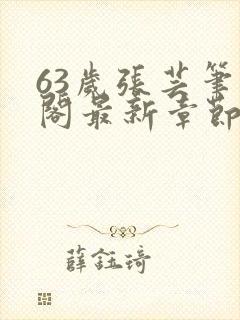 63歲張芸筆
閣最新章節
薛鈺琦